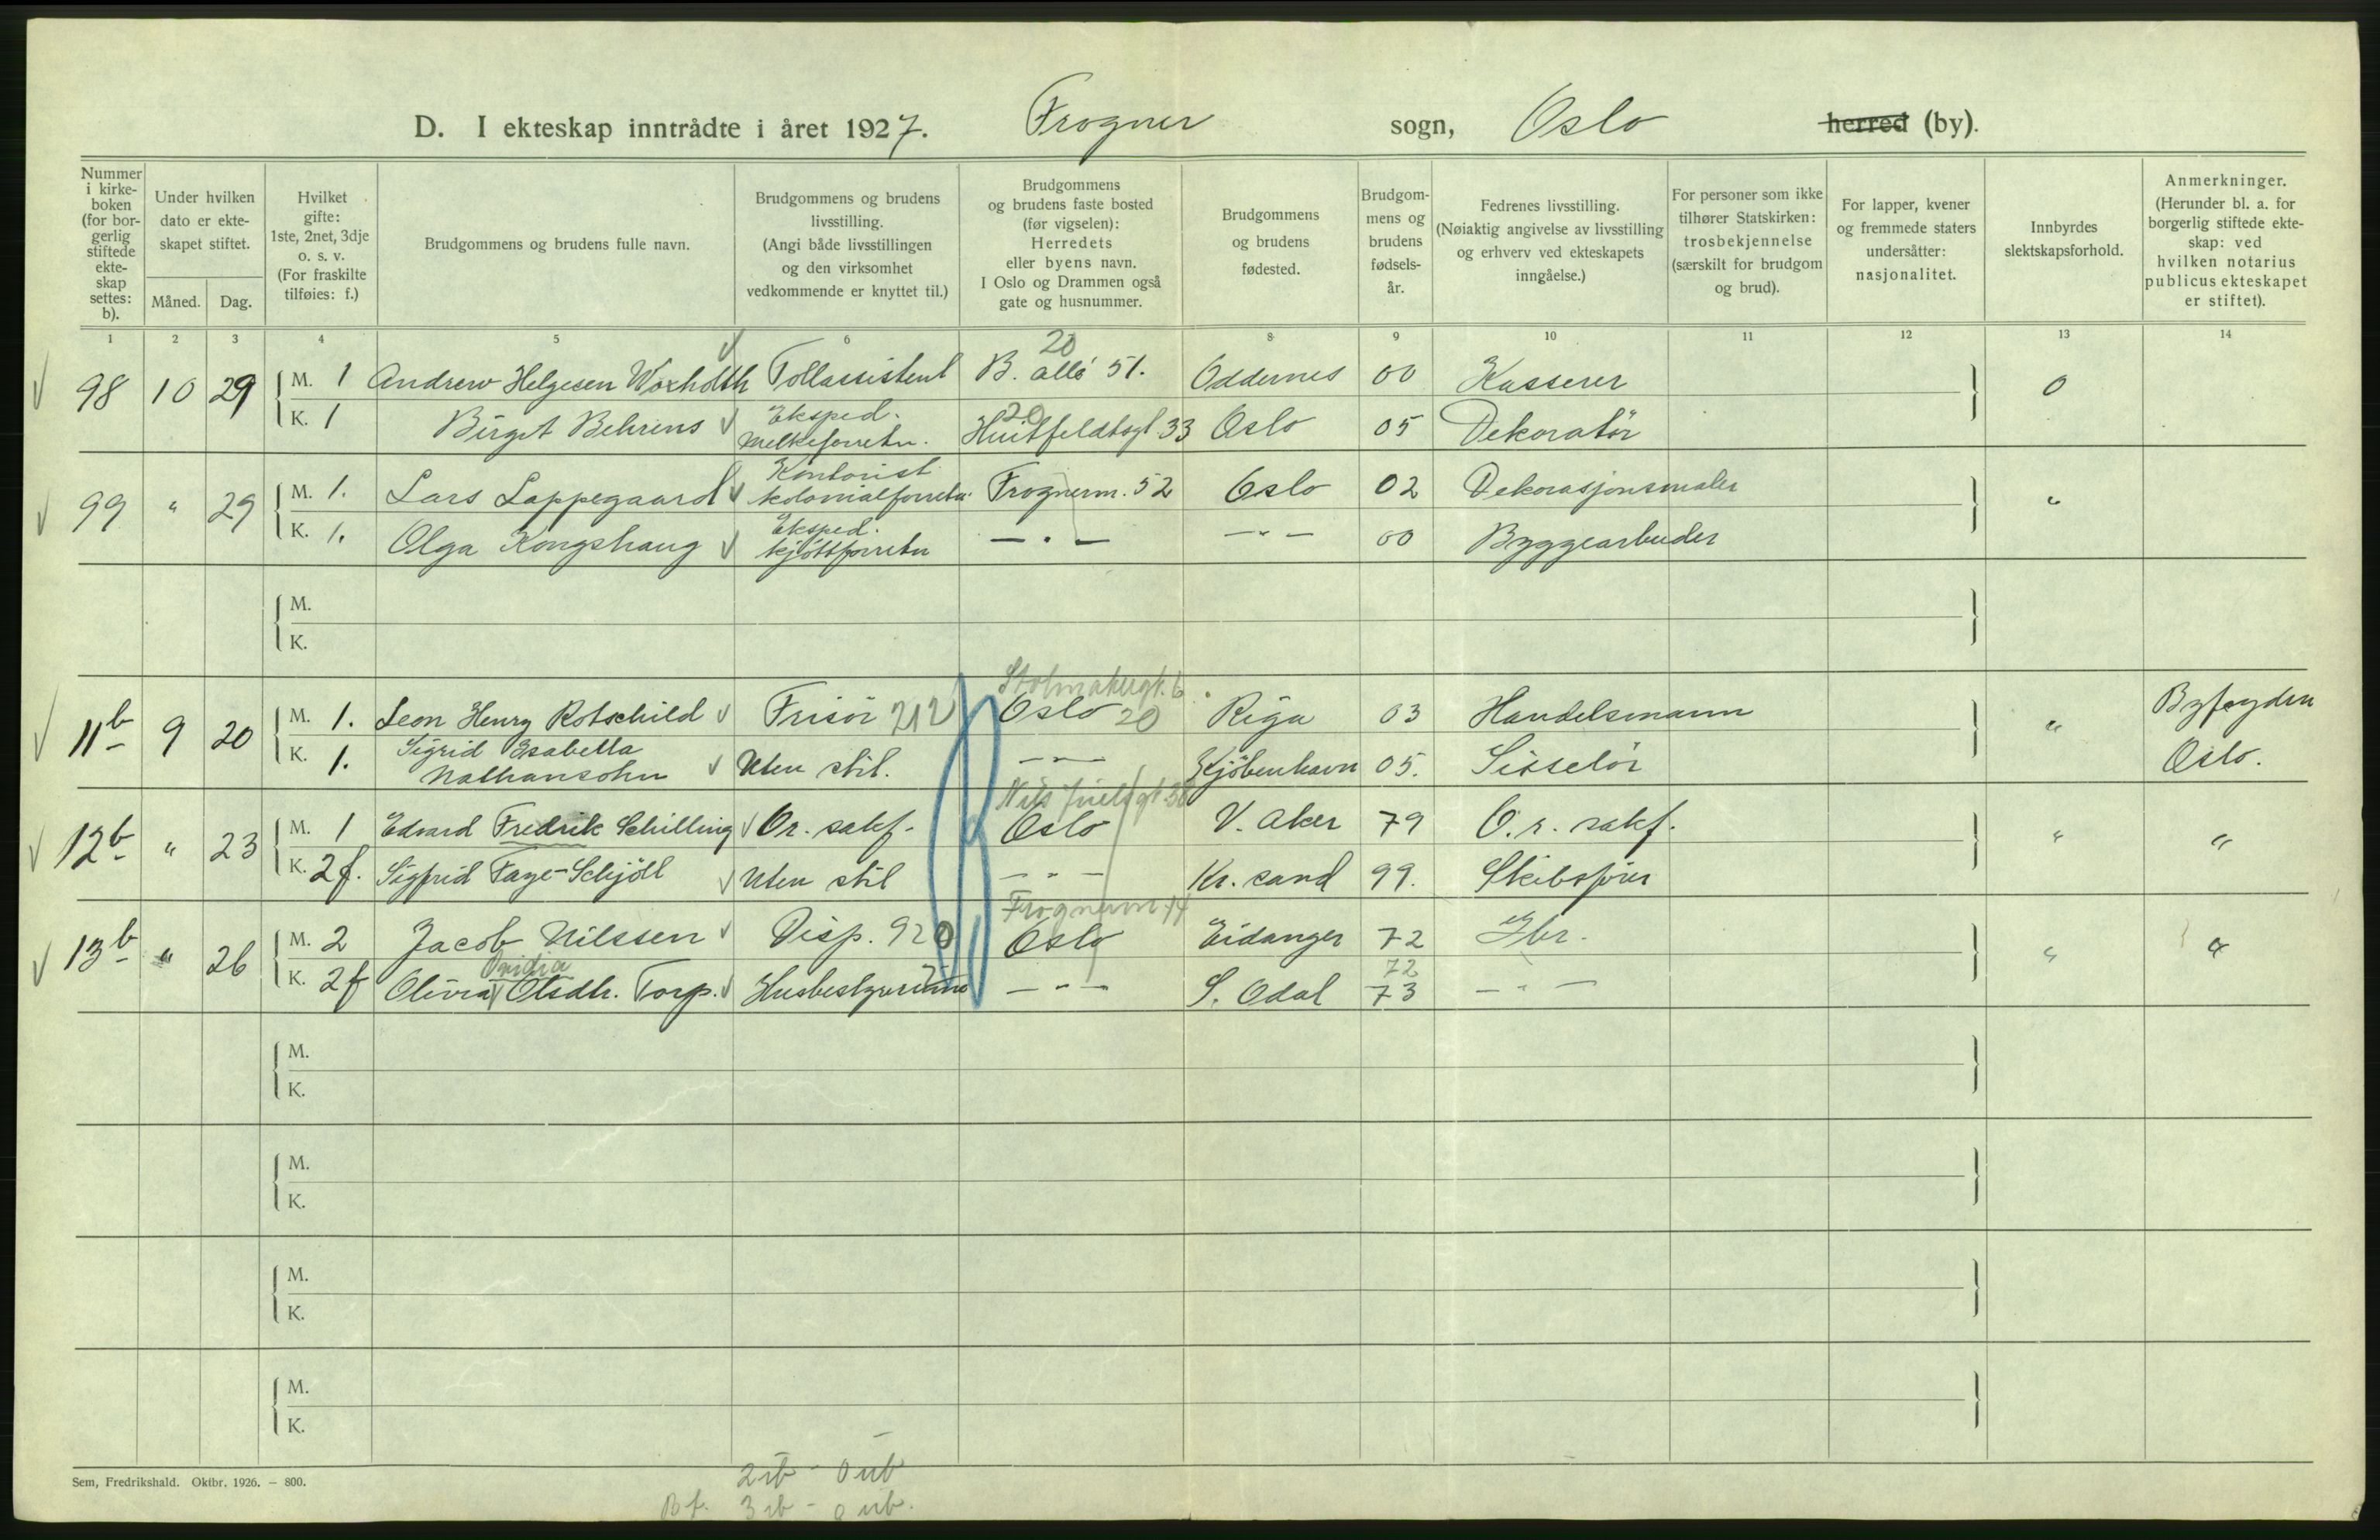 D. I ekteskap inntrådte i året 1927. Frogner sogn, Oslo herred (by).
Nummer i kirke-boken (for bor-gerlig stiftede ekte-skap settes: b).
Under hvilken dato er ekte-skapet stiftet.
Måned. Dag.
Hvilket gifte: 1ste, 2net, 3dje o. s. v. (For fraskilte tilføies: f.)
Brudgommens og brudens fulle navn.
Brudgommens og brudens livsstilling. (Angi både livsstillingen og den virksomhet vedkommende er knyttet til.)
Brudgommens og brudens faste bosted (før vigselen): Herredets eller byens navn. I Oslo og Drammen også gate og husnummer.
Brudgommens og brudens fødested.
Brudgom-mens og brudens fødsels-år.
Fedrenes livsstilling. (Nøiaktig angivelse av livsstilling og erhverv ved ekteskapets inngåelse.)
For personer som ikke tilhører Statskirken: trosbekjennelse (særskilt for brudgom og brud).
For lapper, kvener og fremmede staters undersåtter: nasjonalitet.
Innbyrdes slektskapsforhold.
Anmerkninger. (Herunder bl. a. for borgerlig stiftede ekte-skap: ved hvilken notarius publicus ekteskapet er stiftet).
1 2 3 4 5 6 8 9 10 11 12 13 14
20
98 10 29 M. 1 Andrew Helgesen Woxholth Tollassistent B. allé 51. Oddernes 00 Kasserer 0
20
K. 1 Birgit Behrens Eksped. Melkeforretn. Huitfeldtsgt. 33 Oslo 05 Dekoratör
99 " 29 M. 1. Lars Lappegaard Kontorist kolonialforretn. Frognerm. 52 Oslo 02 Dekorasjonsmaler "
K. 1. Olga Kongshaug Eksped. kjöttforretn - " - - " - 00 Byggearbeider
M.
K.
Stolmakergt. 6
11b 9 20 M. 1. Leon Henry Rotschild Frisör 212 Oslo 20 Riga 03 Handelsmann " Byfogden
K. 1. Sigrid Isabella Nathansohn Uten stil. - " - Kjöbenhavn 05. Siselör Oslo.
Nils Juelsgt. 38
12b " 23 M. 1 Edvard Fredrik Schilling Or. sakf. Oslo V. Aker 79 O. r. sakf. " "
K. 2 f. Sigfrid Faye-Schjöll Uten stil - " - Kr. sand 99. Skibsförer
Frognerm. 14
13b " 26 M. 2 Jacob Nilssen Disp. 920 Oslo Eidanger 72 Gbr. " "
Ovidia 72
K. 2 f Olivia Olsdtr. Torp. Husbestyrerinne - " - S. Odal 73 - " -
M.
K.
M.
K.
M.
K.
M.
K.
Sem, Fredrikshald. Oktbr. 1926. — 800.
2 ib - 0 ub
Bf. 3 ib - 0 ub.